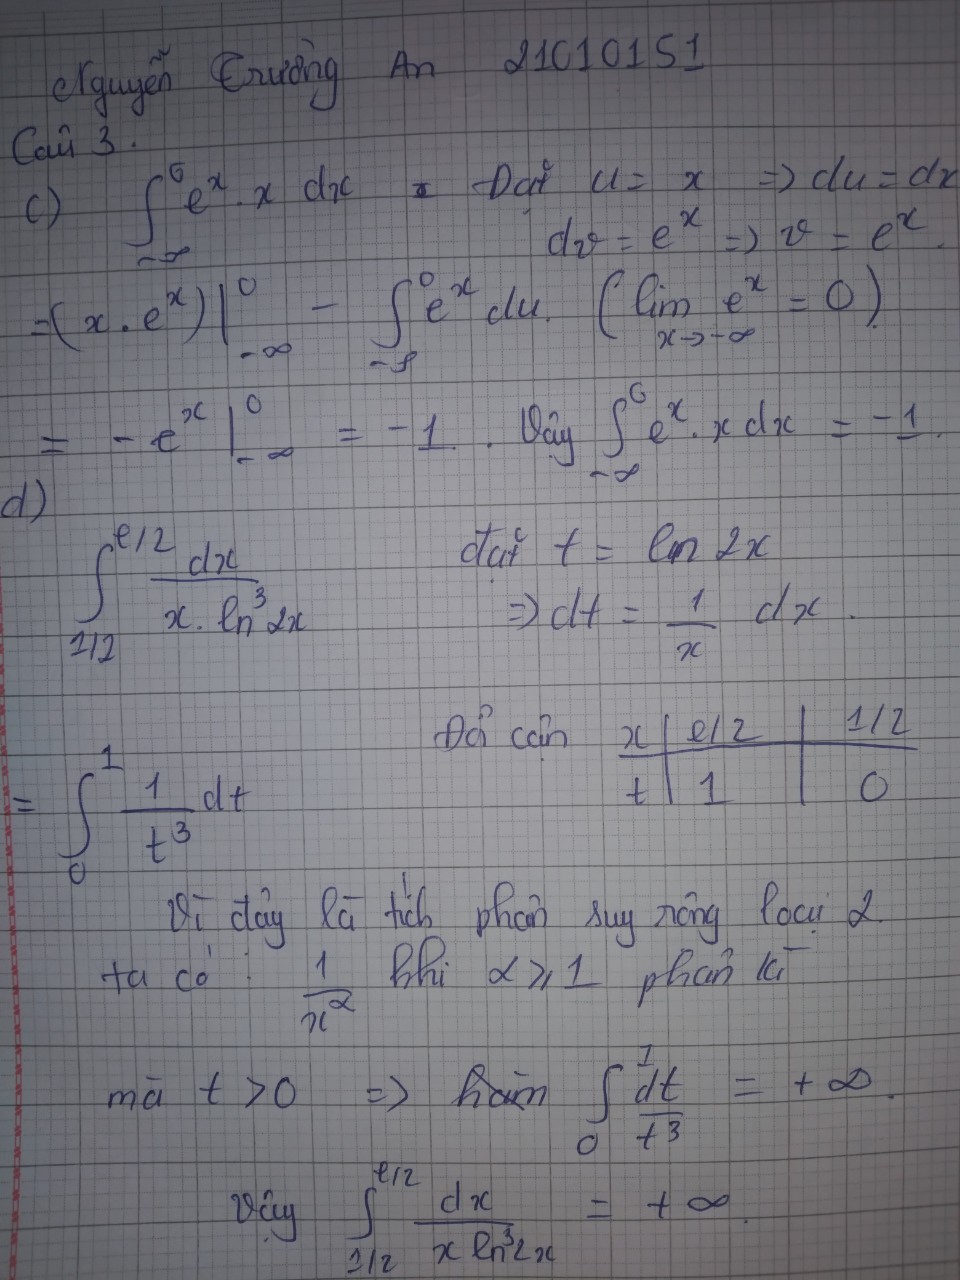 Nguyễn Trường An 21010151
Câu 3.
c) ∫_{-∞}^{0} e^x . x dx = Đặt u = x => du = dx
dv = e^x => v = e^x.
= (x . e^x)|_{-∞}^{0} - ∫_{-∞}^{0} e^x du. (lim_{x→-∞} e^x = 0)
= - e^x |_{-∞}^{0} = -1. Vậy ∫_{-∞}^{0} e^x . x dx = -1.
d)
∫_{1/2}^{e/2} dx / (x. ln^3 2x) đặt t = ln 2x
=> dt = 1/x dx.
Đổi cận x | e/2 | 1/2
t | 1 | 0
= ∫_{0}^{1} 1/t^3 dt
Vì đây là tích phân suy rộng loại 2.
ta có : 1/x^α khi α ⩾ 1 phân kì
mà t > 0 => hàm ∫_{0}^{1} dt/t^3 = + ∞.
Vậy ∫_{1/2}^{e/2} dx / (x ln^3 2x) = + ∞.